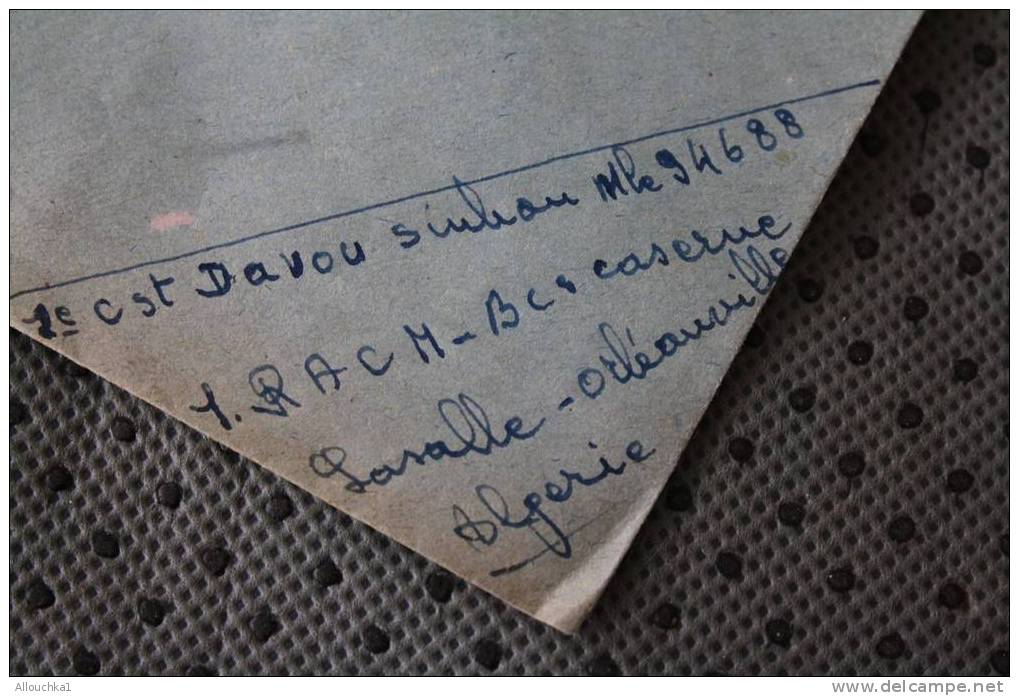 1e cst Davou sinhou Mle 94688
1. RACM - Bcs caserne
Lasalle - Orléauville
Algerie
Allouchka1
www.delcampe.net